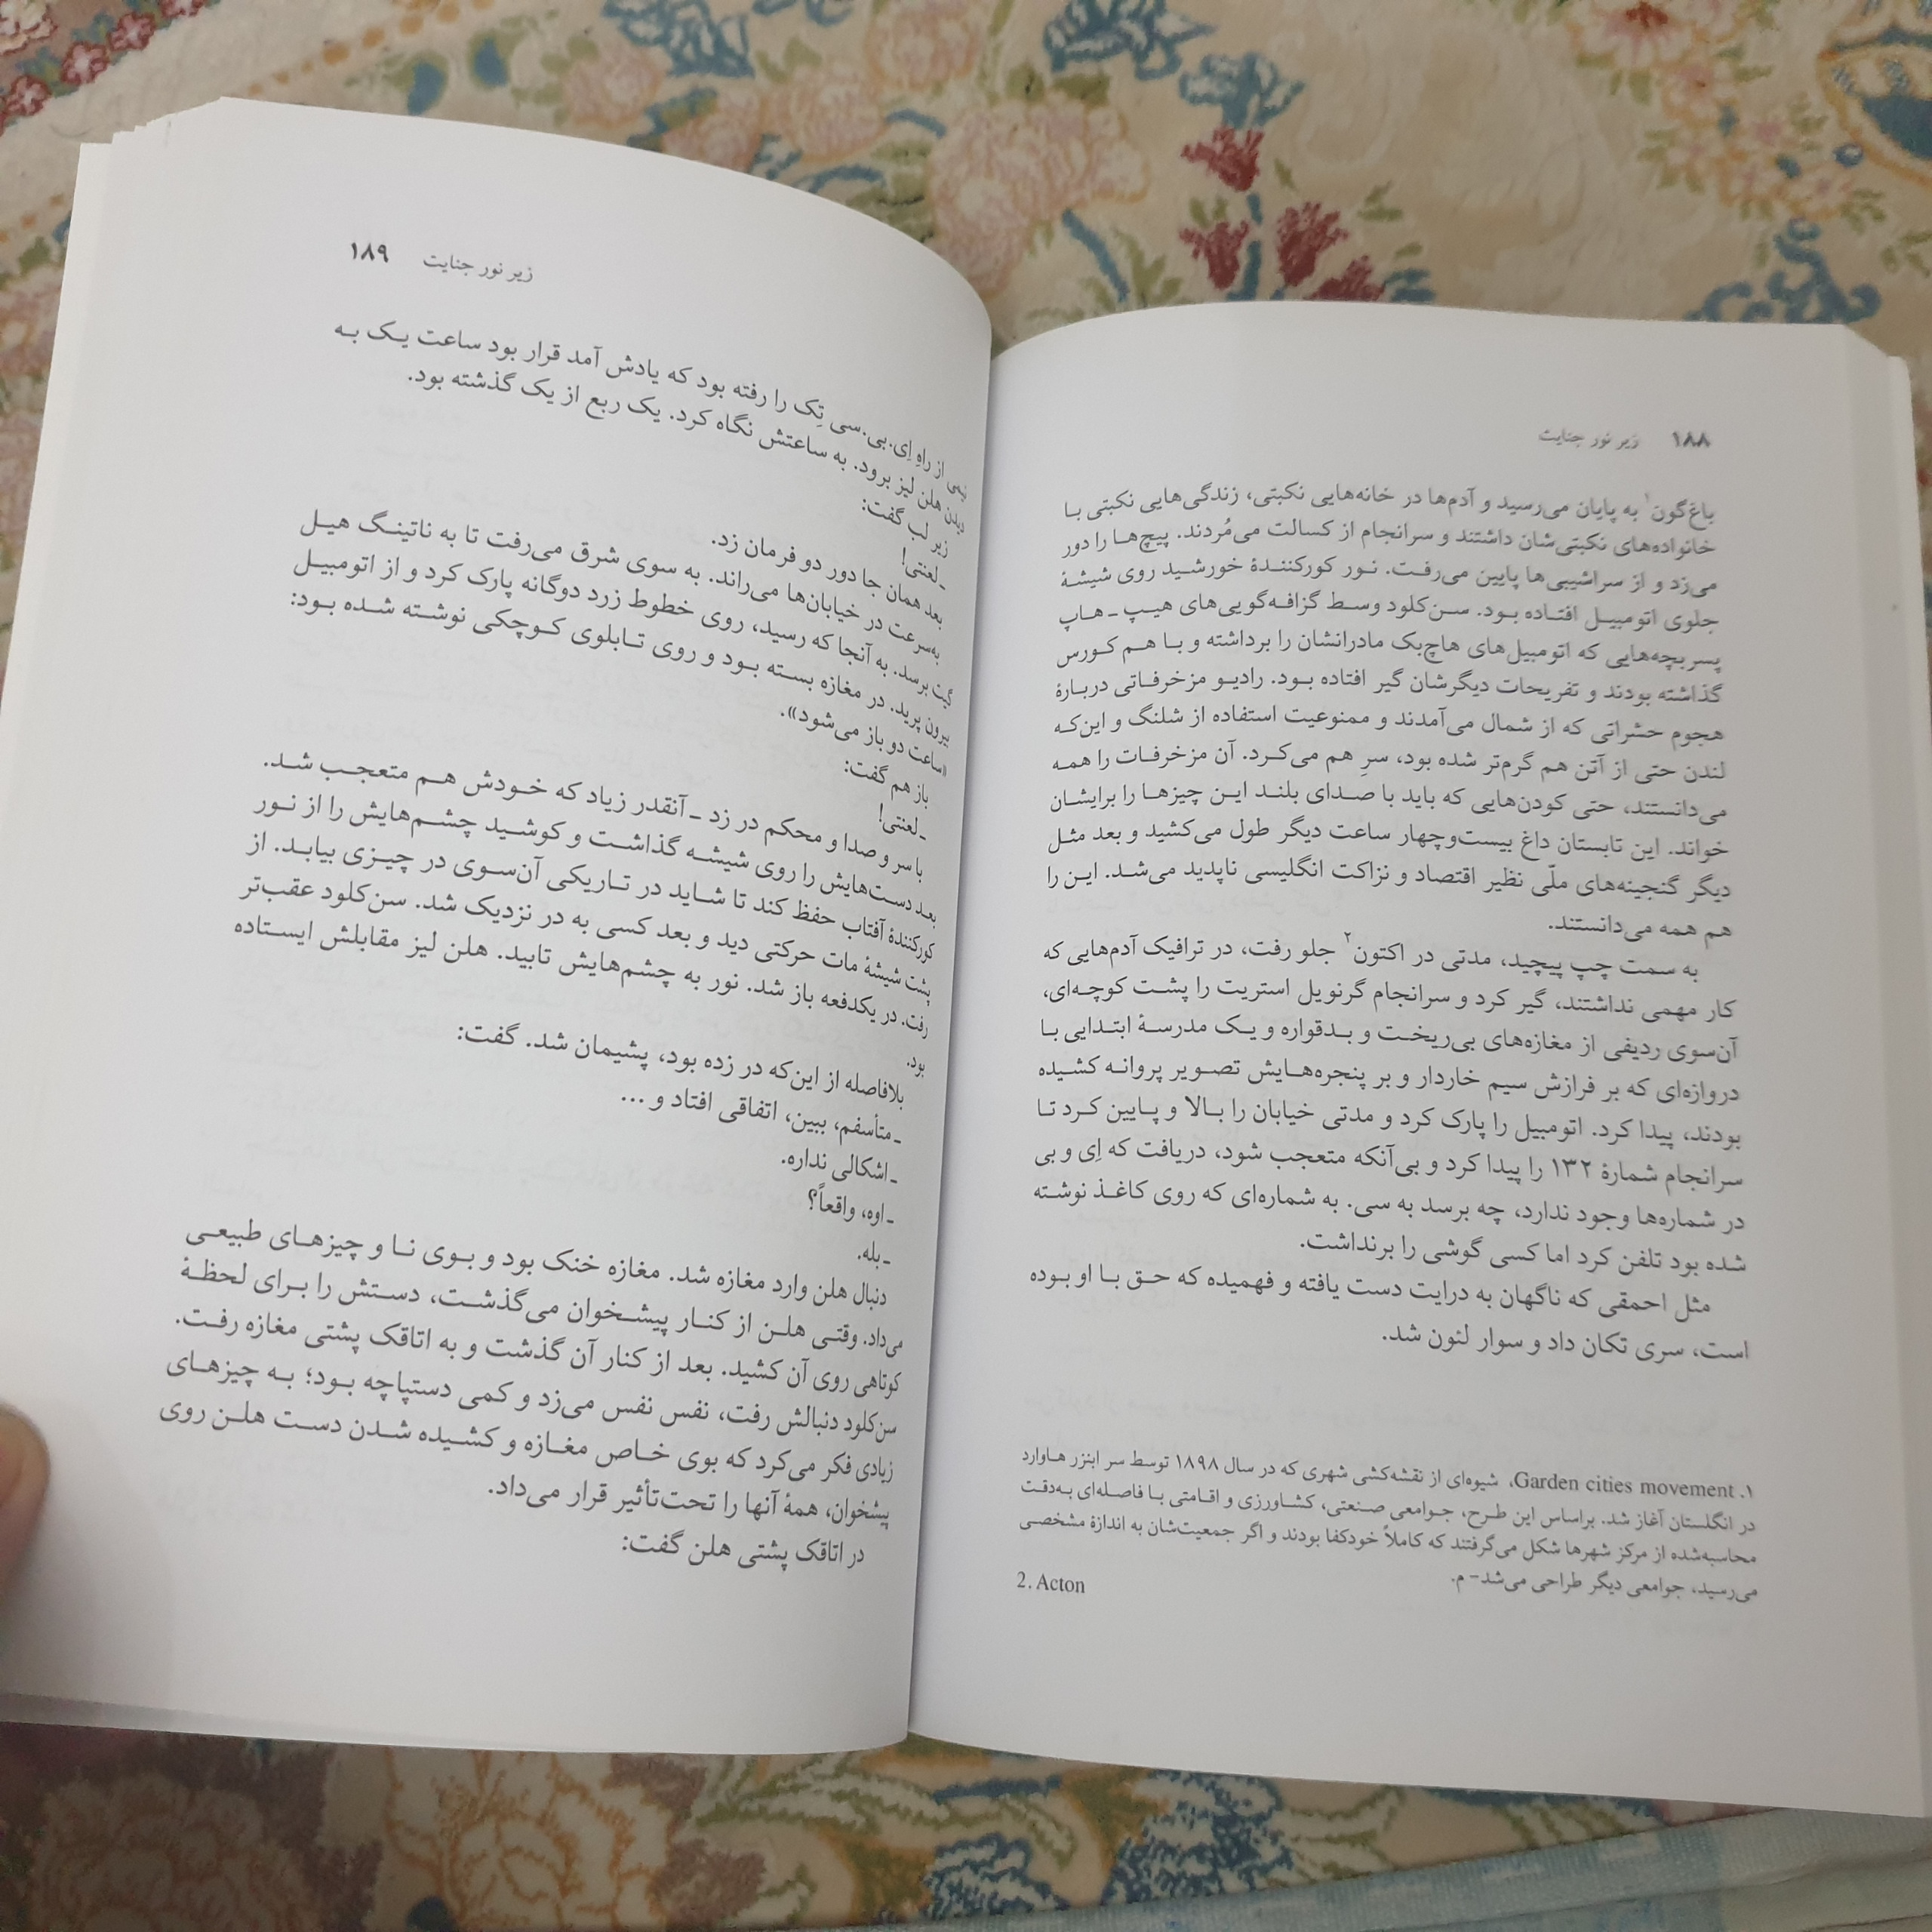 ۱۸۸ زیر نور جنایت
باغ‌گون۱ به پایان می‌رسید و آدم‌ها در خانه‌هایی نکبتی، زندگی‌هایی نکبتی با
خانواده‌های نکبتی‌شان داشتند و سرانجام از کسالت می‌مُردند. پیچ‌ها را دور
می‌زد و از سراشیبی‌ها پایین می‌رفت. نور کورکنندهٔ خورشید روی شیشهٔ
جلوی اتومبیل افتاده بود. سن‌کلود وسط گزافه‌گویی‌های هیپ ـ هاپ
پسربچه‌هایی که اتومبیل‌های هاچ‌بک مادرانشان را برداشته و با هم کورس
گذاشته بودند و تفریحات دیگرشان گیر افتاده بود. رادیو مزخرفاتی دربارهٔ
هجوم حشراتی که از شمال می‌آمدند و ممنوعیت استفاده از شلنگ و این‌که
لندن حتی از آتن هم گرم‌تر شده بود، سرِ هم می‌کرد. آن مزخرفات را همه
می‌دانستند، حتی کودن‌هایی که باید با صدای بلند این چیزها را برایشان
خواند. این تابستان داغ بیست‌وچهار ساعت دیگر طول می‌کشید و بعد مثل
دیگر گنجینه‌های ملّی نظیر اقتصاد و نزاکت انگلیسی ناپدید می‌شد. این را
هم همه می‌دانستند.
به سمت چپ پیچید، مدتی در اکتون۲ جلو رفت، در ترافیک آدم‌هایی که
کار مهمی نداشتند، گیر کرد و سرانجام گرنویل استریت را پشت کوچه‌ای،
آن‌سوی ردیفی از مغازه‌های بی‌ریخت و بدقواره و یک مدرسهٔ ابتدایی با
دروازه‌ای که بر فرازش سیم خاردار و بر پنجره‌هایش تصویر پروانه کشیده
بودند، پیدا کرد. اتومبیل را پارک کرد و مدتی خیابان را بالا و پایین کرد تا
سرانجام شمارهٔ ۱۳۲ را پیدا کرد و بی‌آنکه متعجب شود، دریافت که اِی و بی
در شماره‌ها وجود ندارد، چه برسد به سی. به شماره‌ای که روی کاغذ نوشته
شده بود تلفن کرد اما کسی گوشی را برنداشت.
مثل احمقی که ناگهان به درایت دست یافته و فهمیده که حق با او بوده
است، سری تکان داد و سوار لئون شد.
۱. Garden cities movement، شیوه‌ای از نقشه‌کشی شهری که در سال ۱۸۹۸ توسط سر ابنزر هاوارد
در انگلستان آغاز شد. براساس این طرح، جوامعی صنعتی، کشاورزی و اقامتی با فاصله‌ای به‌دقت
محاسبه‌شده از مرکز شهرها شکل می‌گرفتند که کاملاً خودکفا بودند و اگر جمعیت‌شان به اندازهٔ مشخصی
می‌رسید، جوامعی دیگر طراحی می‌شد- م.
2. Acton
زیر نور جنایت ۱۸۹
نیمی از راهِ اِی.بی.سی تِک را رفته بود که یادش آمد قرار بود ساعت یک به
دیدن هلن لیز برود. به ساعتش نگاه کرد. یک ربع از یک گذشته بود.
زیر لب گفت:
ـ لعنتی!
بعد همان جا دور دو فرمان زد.
به‌سرعت در خیابان‌ها می‌راند. به سوی شرق می‌رفت تا به ناتینگ هیل
گیت برسد. به آنجا که رسید، روی خطوط زرد دوگانه پارک کرد و از اتومبیل
بیرون پرید. در مغازه بسته بود و روی تابلوی کوچکی نوشته شده بود:
«ساعت دو باز می‌شود».
باز هم گفت:
ـ لعنتی!
با سر و صدا و محکم در زد ـ آنقدر زیاد که خودش هم متعجب شد.
بعد دست‌هایش را روی شیشه گذاشت و کوشید چشم‌هایش را از نور
کورکنندهٔ آفتاب حفظ کند تا شاید در تاریکی آن‌سوی در چیزی بیابد. از
پشت شیشهٔ مات حرکتی دید و بعد کسی به در نزدیک شد. سن‌کلود عقب‌تر
رفت. در یکدفعه باز شد. نور به چشم‌هایش تابید. هلن لیز مقابلش ایستاده
بود.
بلافاصله از این‌که در زده بود، پشیمان شد. گفت:
ـ متأسفم، ببین، اتفاقی افتاد و ...
ـ اشکالی نداره.
ـ اوه، واقعاً؟
ـ بله.
دنبال هلن وارد مغازه شد. مغازه خنک بود و بوی نا و چیزهای طبیعی
می‌داد. وقتی هلن از کنار پیشخوان می‌گذشت، دستش را برای لحظهٔ
کوتاهی روی آن کشید. بعد از کنار آن گذشت و به اتاقک پشتی مغازه رفت.
سن‌کلود دنبالش رفت، نفس نفس می‌زد و کمی دستپاچه بود؛ به چیزهای
زیادی فکر می‌کرد که بوی خاص مغازه و کشیده شدن دست هلن روی
پیشخوان، همهٔ آنها را تحت‌تأثیر قرار می‌داد.
در اتاقک پشتی هلن گفت: